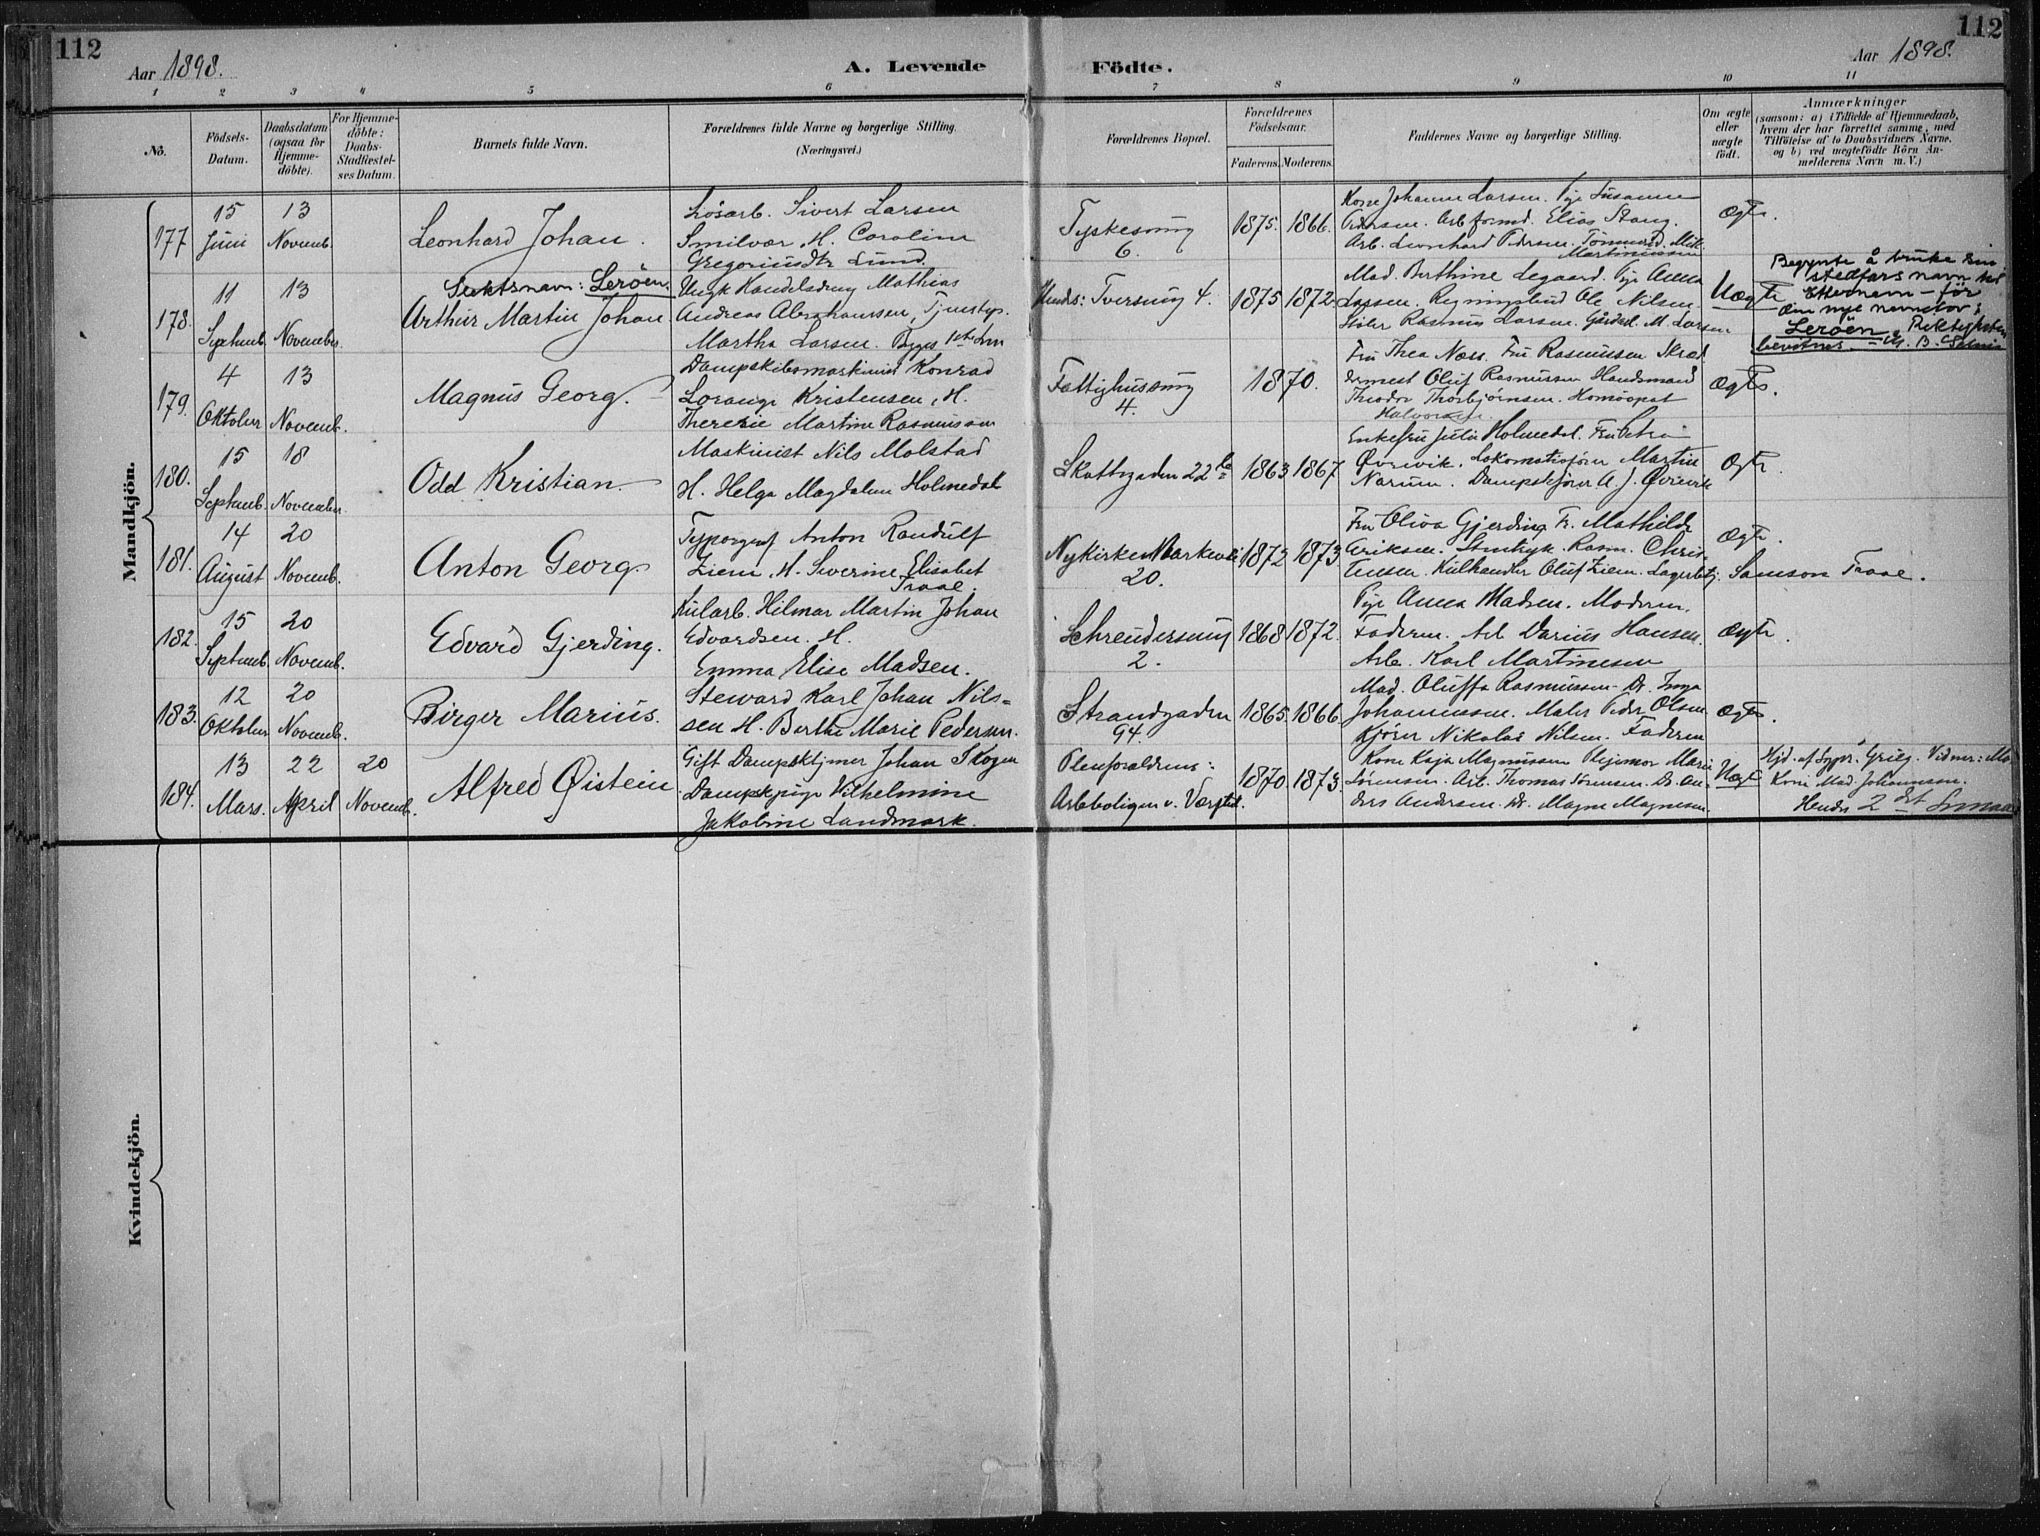 112
Aar 1898.
A. Levende Födte.
Aar 1898.
112
1 2 3 4 5 6 7 8 9 10 11
No.
Födsels-
Datum.
Daabsdatum
(ogsaa for
Hjemme-
döbte).
For Hjemme-
döbte:
Daabs-
Stadfæstel-
ses Datum.
Barnets fulde Navn.
Forældrenes fulde Navne og borgerlige Stilling.
(Næringsvei.)
Forældrenes Bopæl.
Forældrenes
Födselsaar.
Faderens. Moderens.
Faddernes Navne og borgerlige Stilling.
Om ægte
eller
uægte
födt.
Anmærkninger
(saasom: a) i Tilfælde af Hjemmedaab,
hvem der har forrettet samme, med
Tilföielse af to Daabsvidners Navne,
og b) ved uægtefödte Börn An-
melderens Navn m. V.)
Mandkjön.
177
15 Juni
13 Novemb.
Leonhard Johan.
Løsarb. Sivert Larsen
Smilvær H. Caroline
Gregoriusdtr Lund.
Tyskesmug
6.
1875. 1866.
Kone Johanne Larsen. Pige Susanne
Pedersen. Arb.formd. Elias Stang.
Arb. Leonhard Pedersen.
Martinussen
Ægte.
178.
11 Septemb.
13 November.
Slektsnavn: Lerøen.
Arthur Martin Johan
Ungk Handelsdreng Mathias
Andreas Abrahamsen, Tjenstep.
Martha Larsen.
Hendes: Tversmug 4.
1875 1872
Mad. Berthine Legaard. Pige Anna
Larsen. Ole Nilsen
Rasmus Larsen. Gårdsk. M. Larsen
Uægte
Begynte å bruke sin
stedfars navn til
Etternavn – før
den nye navnelov:
Lerøen. Riktigheten
bevitnes.
179.
4 Oktober
13 Novemb.
Magnus Georg.
Dampskibsmaskinist Konrad
Lorange Kristensen, H.
Theresie Martine Rasmussen
Fattighussmug
4.
1870.
Fru Thea Næss. Fru Rasmussen Skræd
dermest Oluf Rasmussen Handsmand
Theodor Thorbjørnsen. Homöopat
Halvorsen.
Ægte.
180.
15 Septemb.
18 November
Odd Kristian.
Maskinist Nils Molstad
H. Helga Magdalena Holmedal
Skottegaden 22 b
1863 1867
Enkefru Julie Holmedal. Fru Petra
Øvrevik. Lokomotivfører Martin
Narum. Dampskfører A. J. Øvrevik
Ægte.
181.
14 August
20 Novemb.
Anton Georg.
Typograf Anton Randulf
Ziem, H. Severine Elisabet
Traae.
Nykirke Markevei
20.
1872 1873
Fru Oliva Gjerding Fr. Mathilde
Eriksen. Stentryk. Rasm. Chris
tensen. Kulhandler Oluf Ziem. Lagerbetj. Samson Traae.
Ægte.
182.
15 Septemb.
20 Novemb.
Edvard Gjerding.
Kularb. Hilmar Martin Johan
Edvardsen. H.
Emma Elise Madsen.
Schreudersmug
2.
1868 1872.
Pige Anna Madsen. Moderen.
Faderen. Arb Darius Hansen.
Arb. Karl Martinesen
Ægte.
183.
12 Oktober
20 Novemb.
Birger Marius.
Steward Karl Johan Nils=
sen H. Berthe Marie Pedersen.
Strandgaden
94.
1865. 1866.
Mad. Oluffa Rasmussen. Do. Inga
Johannessen. Maler Peder Olsen
Kjører Nikolai Nilsen. Faderen
Ægte.
184.
13 Mars.
22 April
20 Novemb.
Alfred Øistein
Gift Dampsktjener Johan Skogen
Dampskpige Vilhelmine
Jakobine Landmark.
Pleieforældrene:
Arbeboligen v. Verftet.
1870. 1873.
Kone Kaja Magnussen Pleiemor Marie
Sørensen. Arb. Thomas Sørensen. Do. An
ders Andersen. Do. Magne Magnesen.
Uægt
Hjd. af Sygpr. Grieg. Vidner: Mo
Kone Mad. Johannesen.
Hendes 2det
Kvindekjön.